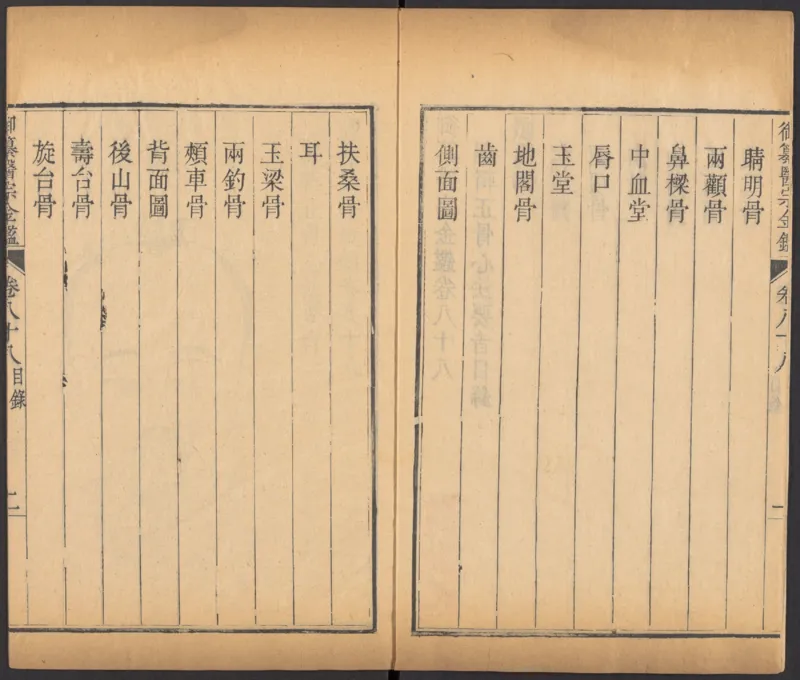 御纂醫宗金鑑 卷八十八
一
睛明骨
兩顴骨
鼻樑骨
中血堂
唇口
玉堂
地閣骨
齒
側面圖
扶桑骨
耳
玉梁骨
兩釣骨
頰車骨
背面圖
後山骨
壽台骨
旋台骨
御纂醫宗金鑑 卷八十八 目錄
二